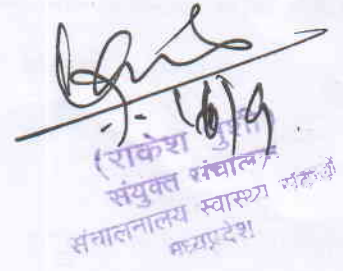 16/9.
(राकेश मुंशी)
संयुक्त संचालक
संचालनालय स्वास्थ्य सेवायें
मध्यप्रदेश